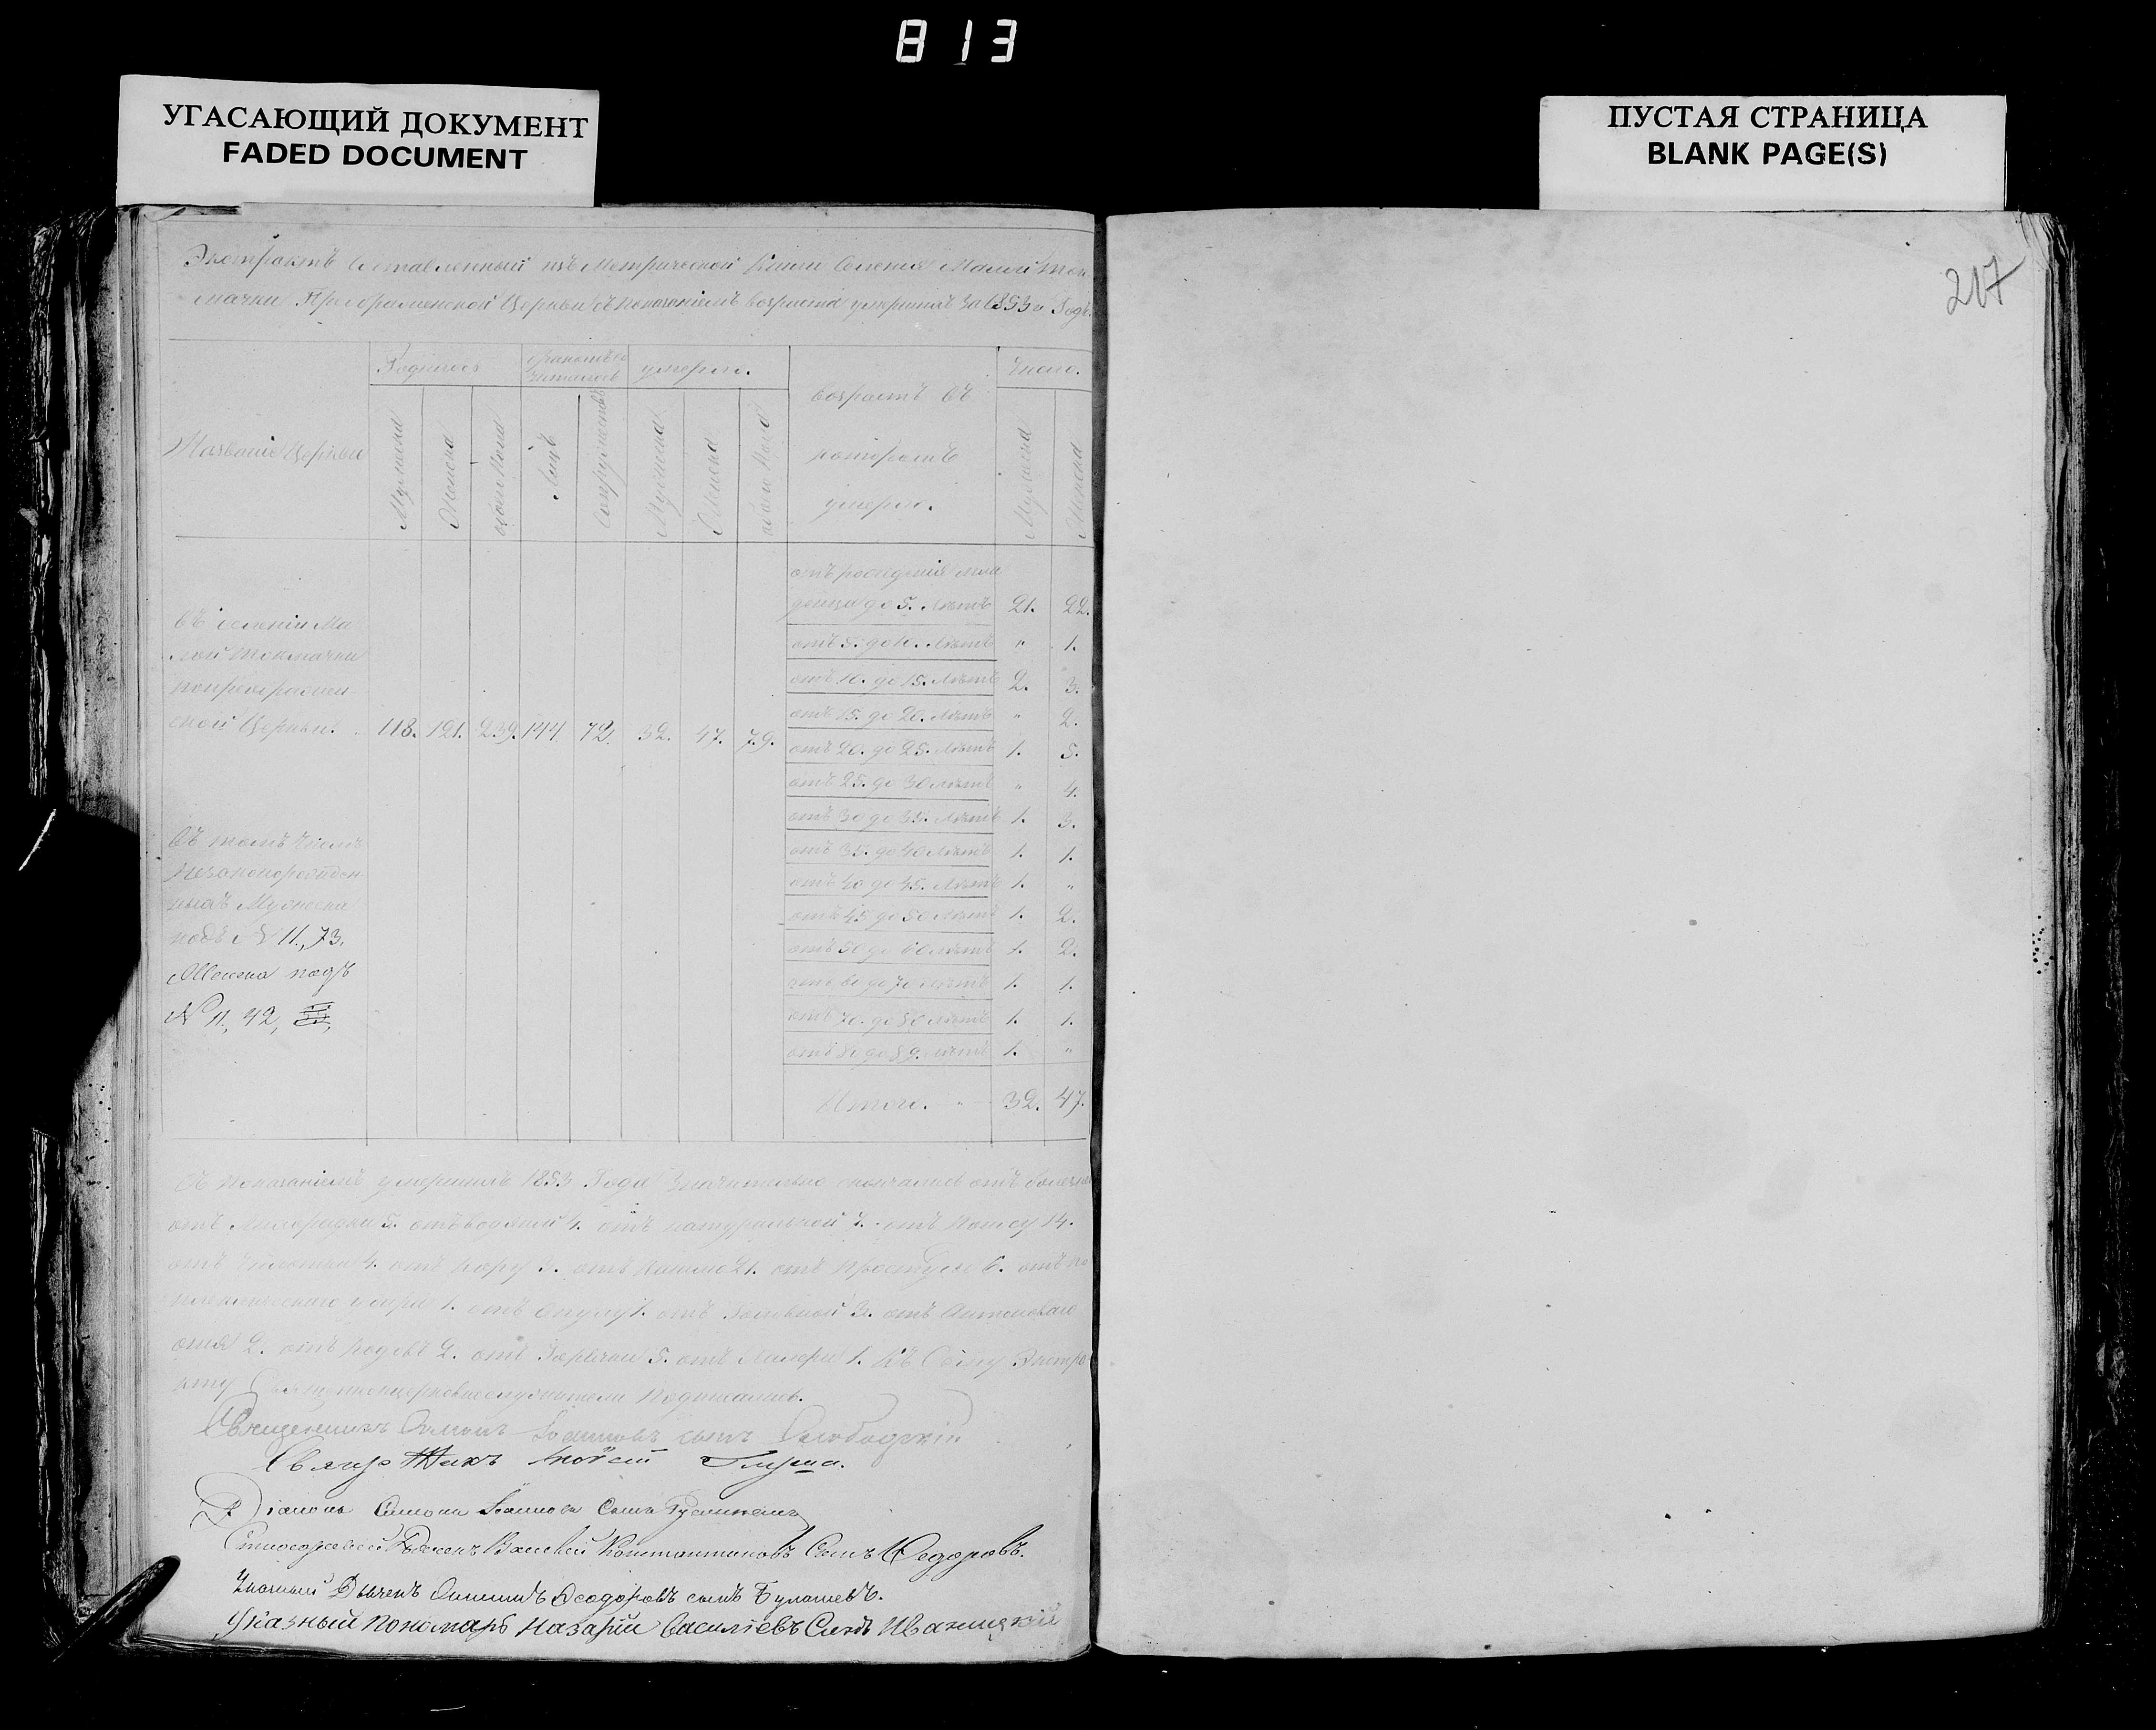 813
УГАСАЮЩИЙ ДОКУМЕНТ
FADED DOCUMENT
ПУСТАЯ СТРАНИЦА
BLANK PAGE(S)
217
Экстрактъ составленный изъ Метрической Книги Селенія Малой Ток
мачки Преображенской Церкви съ показаніемъ возраста умершихъ за 1853й Годъ.
Родилось
умерло.
Число.
Названіе Церкви
Мужеска
Женска
обоего Пола
Лицъ
Супружествъ
Мужеска
Женска
обоего Пола
возрастъ въ
которомъ
умерли.
Мужеска
Женска
Въ селеніи Ма
лой Токмачки
Преображен
ской Церкви. 118. 121. 239. 144 72. 32. 47. 79.
отъ рожденія мла
денцы до 5. Лѣтъ 21. 22.
отъ 5. до 10. Лѣтъ " 1.
отъ 10. до 15. Лѣтъ 2. 3.
отъ 15. до 20. Лѣтъ " 2.
отъ 20. до 25. Лѣтъ 1. 5.
отъ 25. до 30 Лѣтъ " 4.
отъ 30 до 35. Лѣтъ 1. 3.
отъ 35. до 40 Лѣтъ 1. 1.
отъ 40 до 45. Лѣтъ 1. "
отъ 45 до 50 Лѣтъ 1. 2.
отъ 50 до 60 Лѣтъ 1. 2.
отъ 60 до 70 Лѣтъ 1. 1.
отъ 70. до 80 Лѣтъ 1. 1.
отъ 80 до 89. Лѣтъ 1. "
Итого. 32. 47.
Въ томъ числѣ
Незаконорожден
ныхъ Мужеска
подъ № 11, 73.
Женска подъ
№ 11, 42,
Съ показаніемъ умершихъ 1853 Года значительно скончались отъ болезни
отъ 5. отъ водяной 1. отъ натуральной 7. отъ Поносу 14.
отъ Чахотки 4. отъ отъ Кашлю 21. отъ Простуды 6. отъ
удара 1. отъ 1. отъ Головной 3. отъ Антонова
огня 2. отъ родовъ 2. отъ Горячки 5. отъ Холеры 1. Къ Сему Экстра
кту Священноцерковнослужители Подписались.
Священникъ Симонъ Іоанновъ сынъ Слободскій
Священникъ
Діаконъ Симонъ Іоанновъ Сынъ
Василій Константиновъ Сынъ Федоровъ.
Дьячекъ Феодоровъ сынъ Булашевъ.
Указный Пономарь Назарій Василіевъ Сынъ Иваницкій